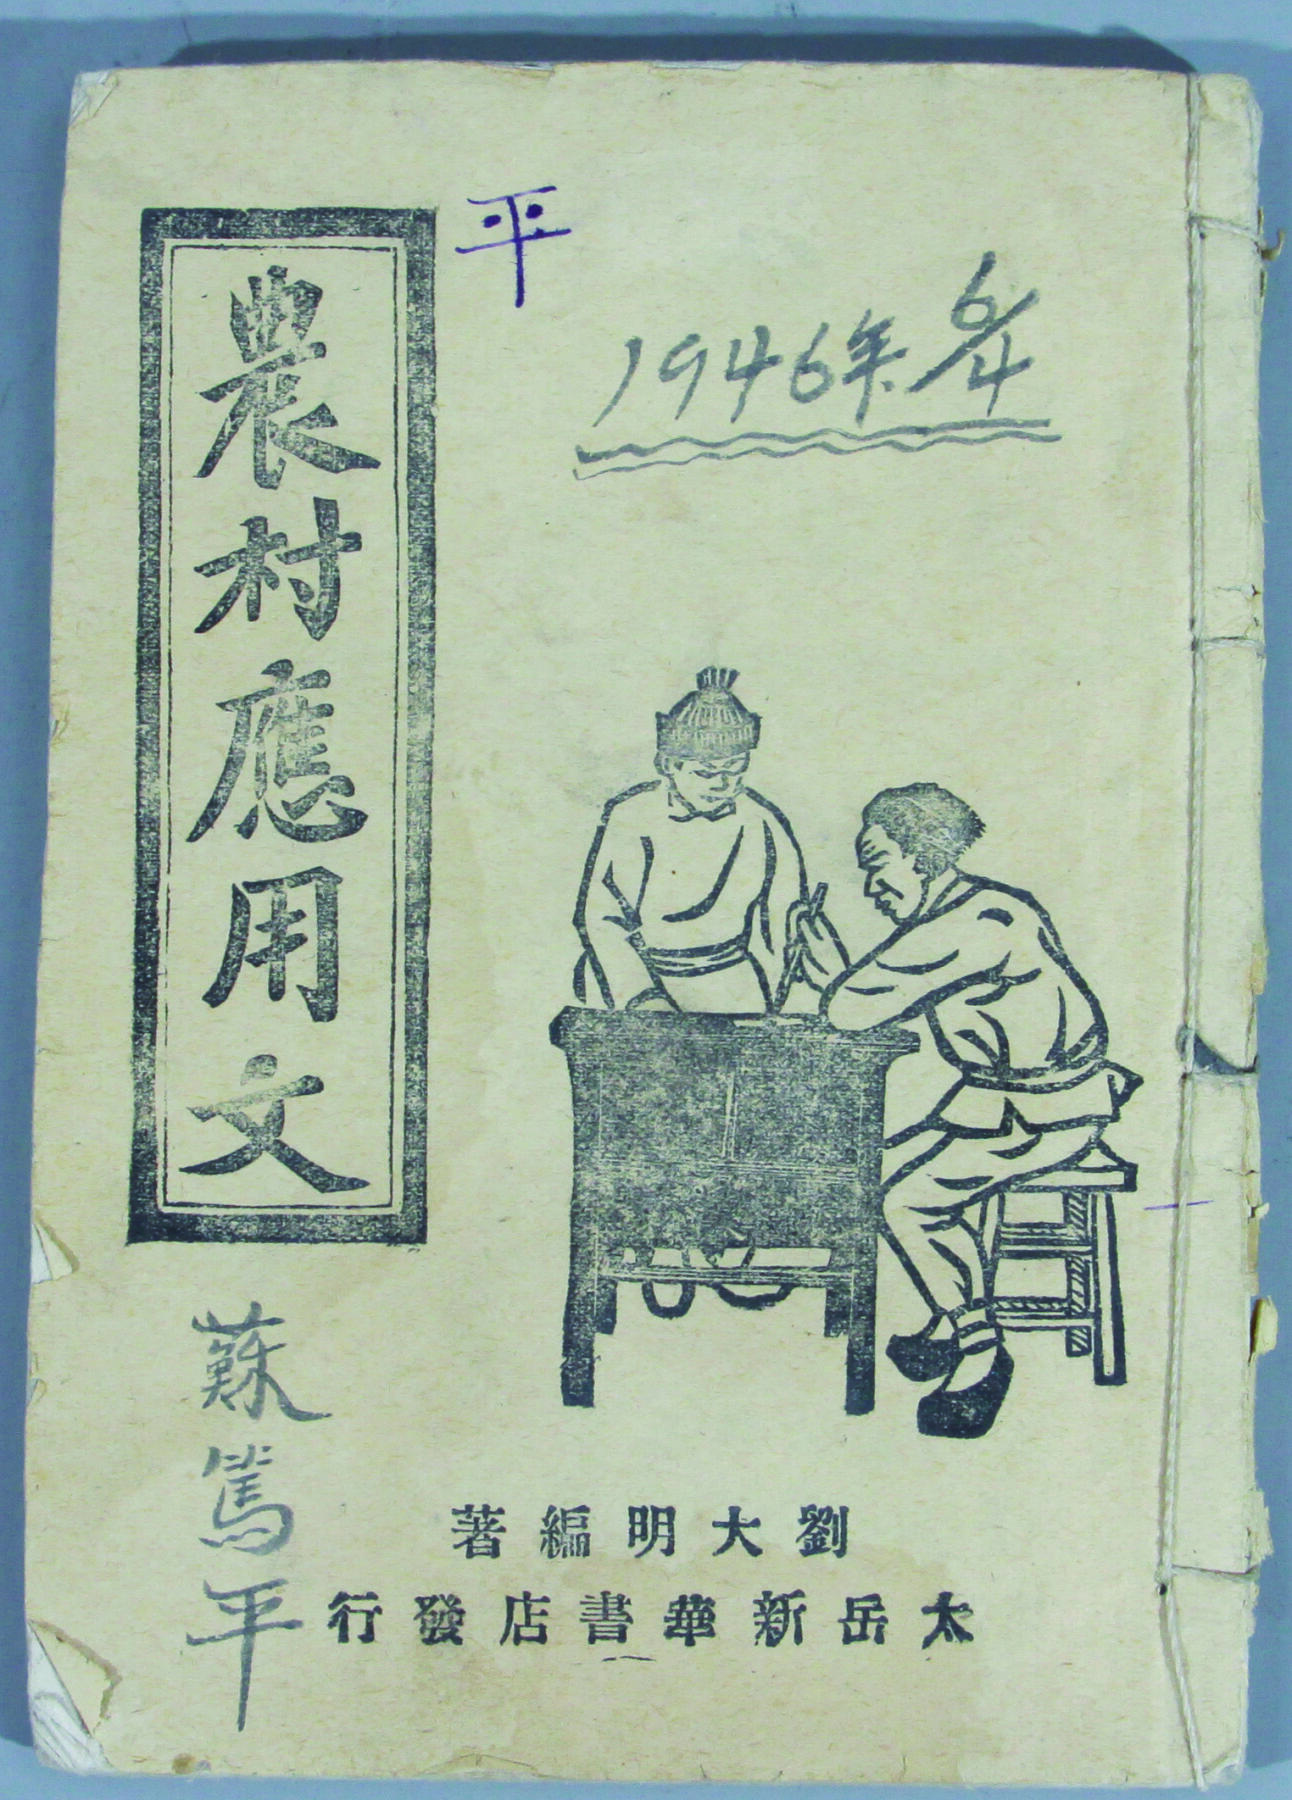 農村應用文
平
1946年6/4
蘇篤平
劉大明編著
太岳新華書店發行